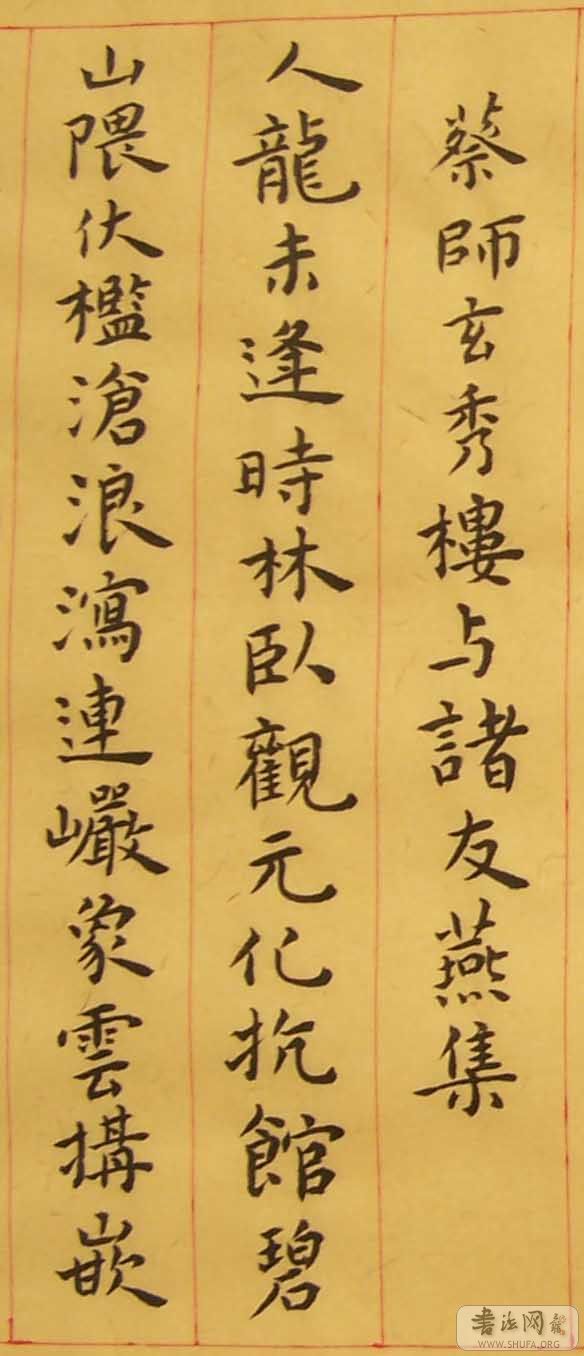 蔡師玄秀樓与諸友燕集
人龍未逢時林臥觀元化抗館碧
山隈伏檻滄浪瀉連巖象雲構嵌
書法网
WWW.SHUFA.ORG